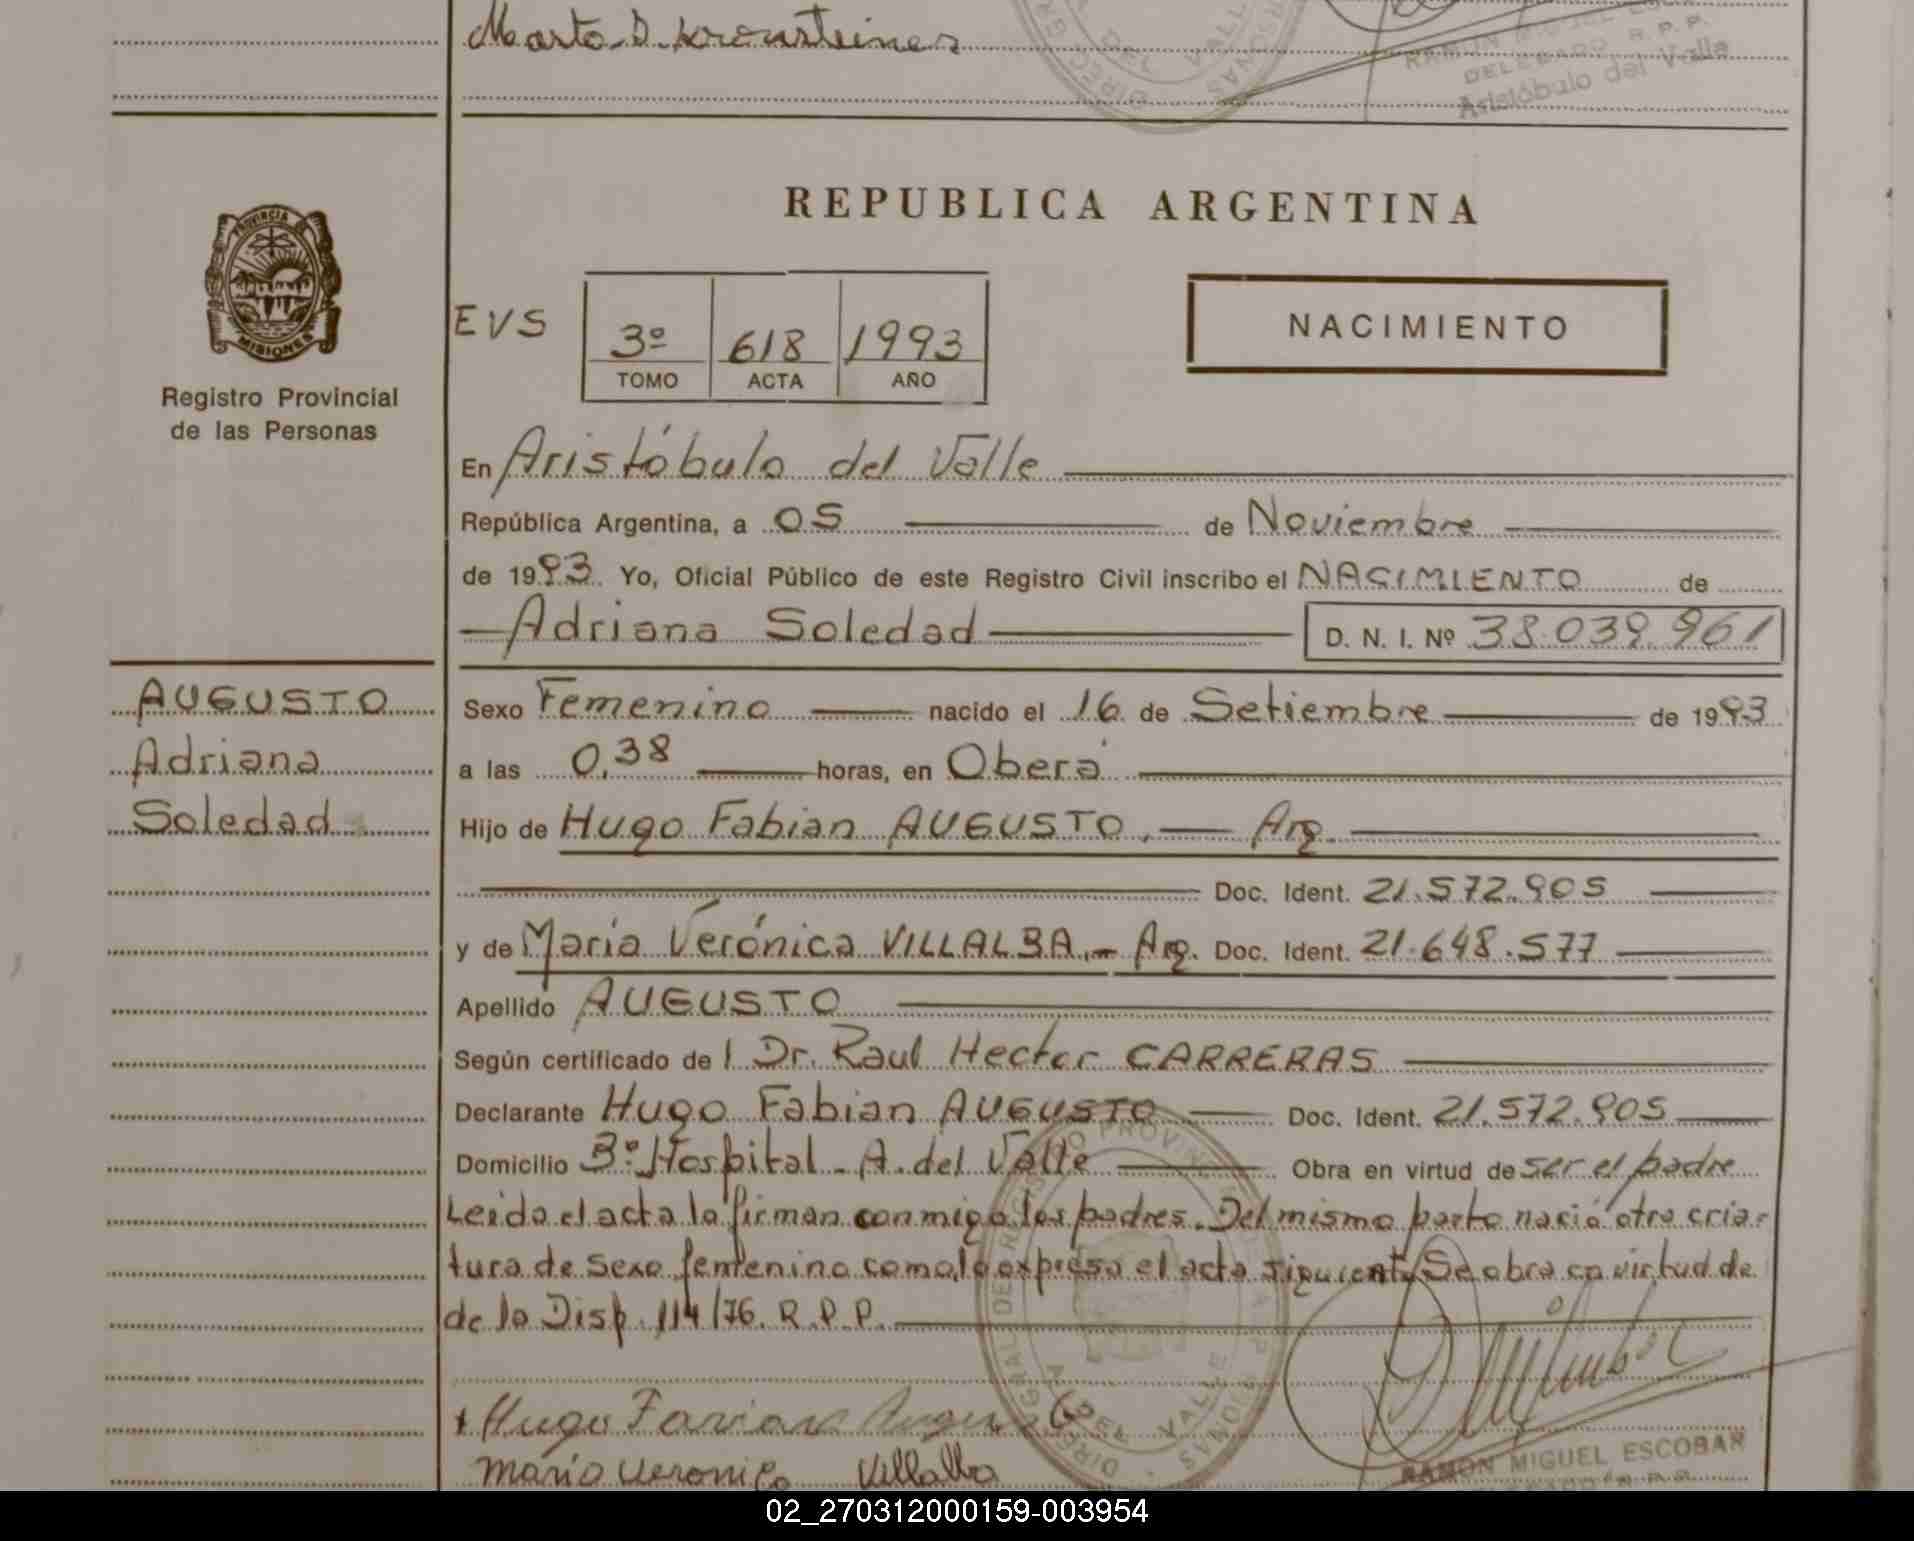 Marta D. Kronsteiner
DIREC
DEL VALLE
RAMON MIGUEL
DELEGADO R.P.P.
Aristóbulo del Valle
PROVINCIA DE
MISIONES
Registro Provincial
de las Personas
REPUBLICA ARGENTINA
EVS
3º 618 1993
TOMO ACTA AÑO
NACIMIENTO
En Aristóbulo del Valle
República Argentina, a 05 de Noviembre
de 1993. Yo, Oficial Público de este Registro Civil inscribo el NACIMIENTO de
Adriana Soledad D. N. I. Nº 38.039.961
AUGUSTO
Adriana
Soledad
Sexo Femenino nacido el 16 de Setiembre de 1993
a las 0,38 horas, en Oberá
Hijo de Hugo Fabian AUGUSTO, Arg.
Doc. Ident. 21.572.905
y de María Verónica VILLALBA.- Arg. Doc. Ident. 21.648.577
Apellido AUGUSTO
Según certificado de l Dr. Raul Hector CARRERAS
Declarante Hugo Fabian AUGUSTO Doc. Ident. 21.572.905
Domicilio Bº Hospital - A. del Valle Obra en virtud de ser el padre
Leida el acta la firman conmigo los padres. Del mismo parto nació otra cria-
tura de sexo femenino como lo expresa el acta siguiente. Se obra en virtud de
de la Disp. 114/76. R.P.P.
Hugo Fabian Augusto
Maria Veronica Villalba
A. DEL VALLE
RAMON MIGUEL ESCOBAR
DELEGADO R.P.P.
02_270312000159-003954